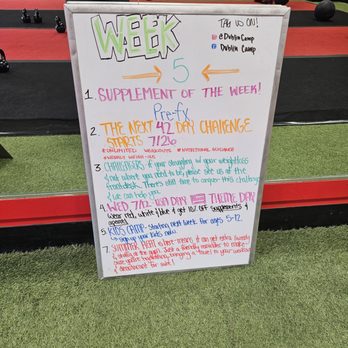 WEEK
5
TAG US ON!
@Dublin Camp
Dublin Camp
1. SUPPLEMENT OF THE WEEK!
Pre-fx
2. THE NEXT 42 DAY CHALLENGE
STARTS 7/26
*UNLIMITED WORKOUTS *NUTRITIONAL GUIDANCE
*WEEKLY WEIGH-INS
3 CHALLENGERS: if your struggling w/ your weightloss
& not where you need to be, please see us at the
frontdesk. There's still time to conquer this challenge
& we can help you.
4. WED 7/12 100 DAY THEME DAY
Wear red, white & blue & get 10% OFF Supplements &
5. KIDS CAMP: Starting next week for ages 5-12.
sign up your kids now.
7. SUMMER HEAT is here- means it can get extra sweaty
& at the gym. Just a friendly reminder to make
sure you're hydrating, bringing a towel to your workout
&